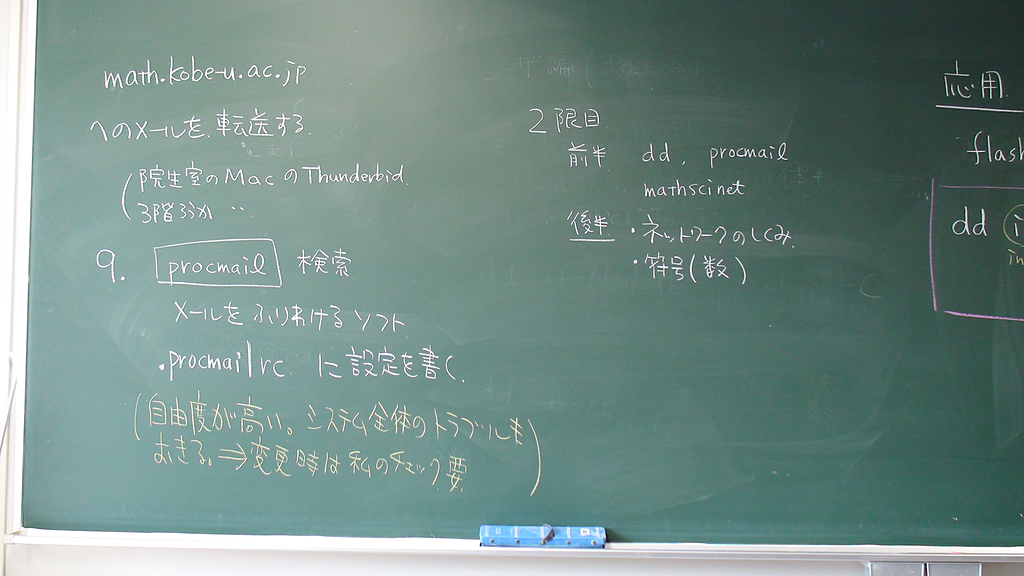 math.kobe-u.ac.jp
へのメールを転送する.
(院生室のMacのThunderbid.
3階ろうか ‥
9. procmail 検索
メールをふりわけるソフト
.procmailrc に設定を書く.
(自由度が高い。システム全体のトラブルも
おきる。⇒変更時は私のチェック要)
2限目
前半 dd, procmail
mathscinet
後半 ・ネットワークのしくみ.
・符号(数)
応用
flash
dd i
in